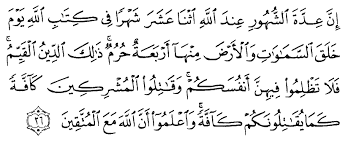 إِنَّ عِدَّةَ الشُّهُورِ عِندَ اللَّهِ اثْنَا عَشَرَ شَهْرًا فِى كِتَابِ اللَّهِ يَوْمَ
خَلَقَ السَّمَاوَاتِ وَالْأَرْضَ مِنْهَا أَرْبَعَةٌ حُرُمٌ ۚ ذَٰلِكَ الدِّينُ الْقَيِّمُ ۚ
فَلَا تَظْلِمُوا فِيهِنَّ أَنفُسَكُمْ ۚ وَقَاتِلُوا الْمُشْرِكِينَ كَافَّةً
كَمَا يُقَاتِلُونَكُمْ كَافَّةً ۚ وَاعْلَمُوا أَنَّ اللَّهَ مَعَ الْمُتَّقِينَ ٣٦